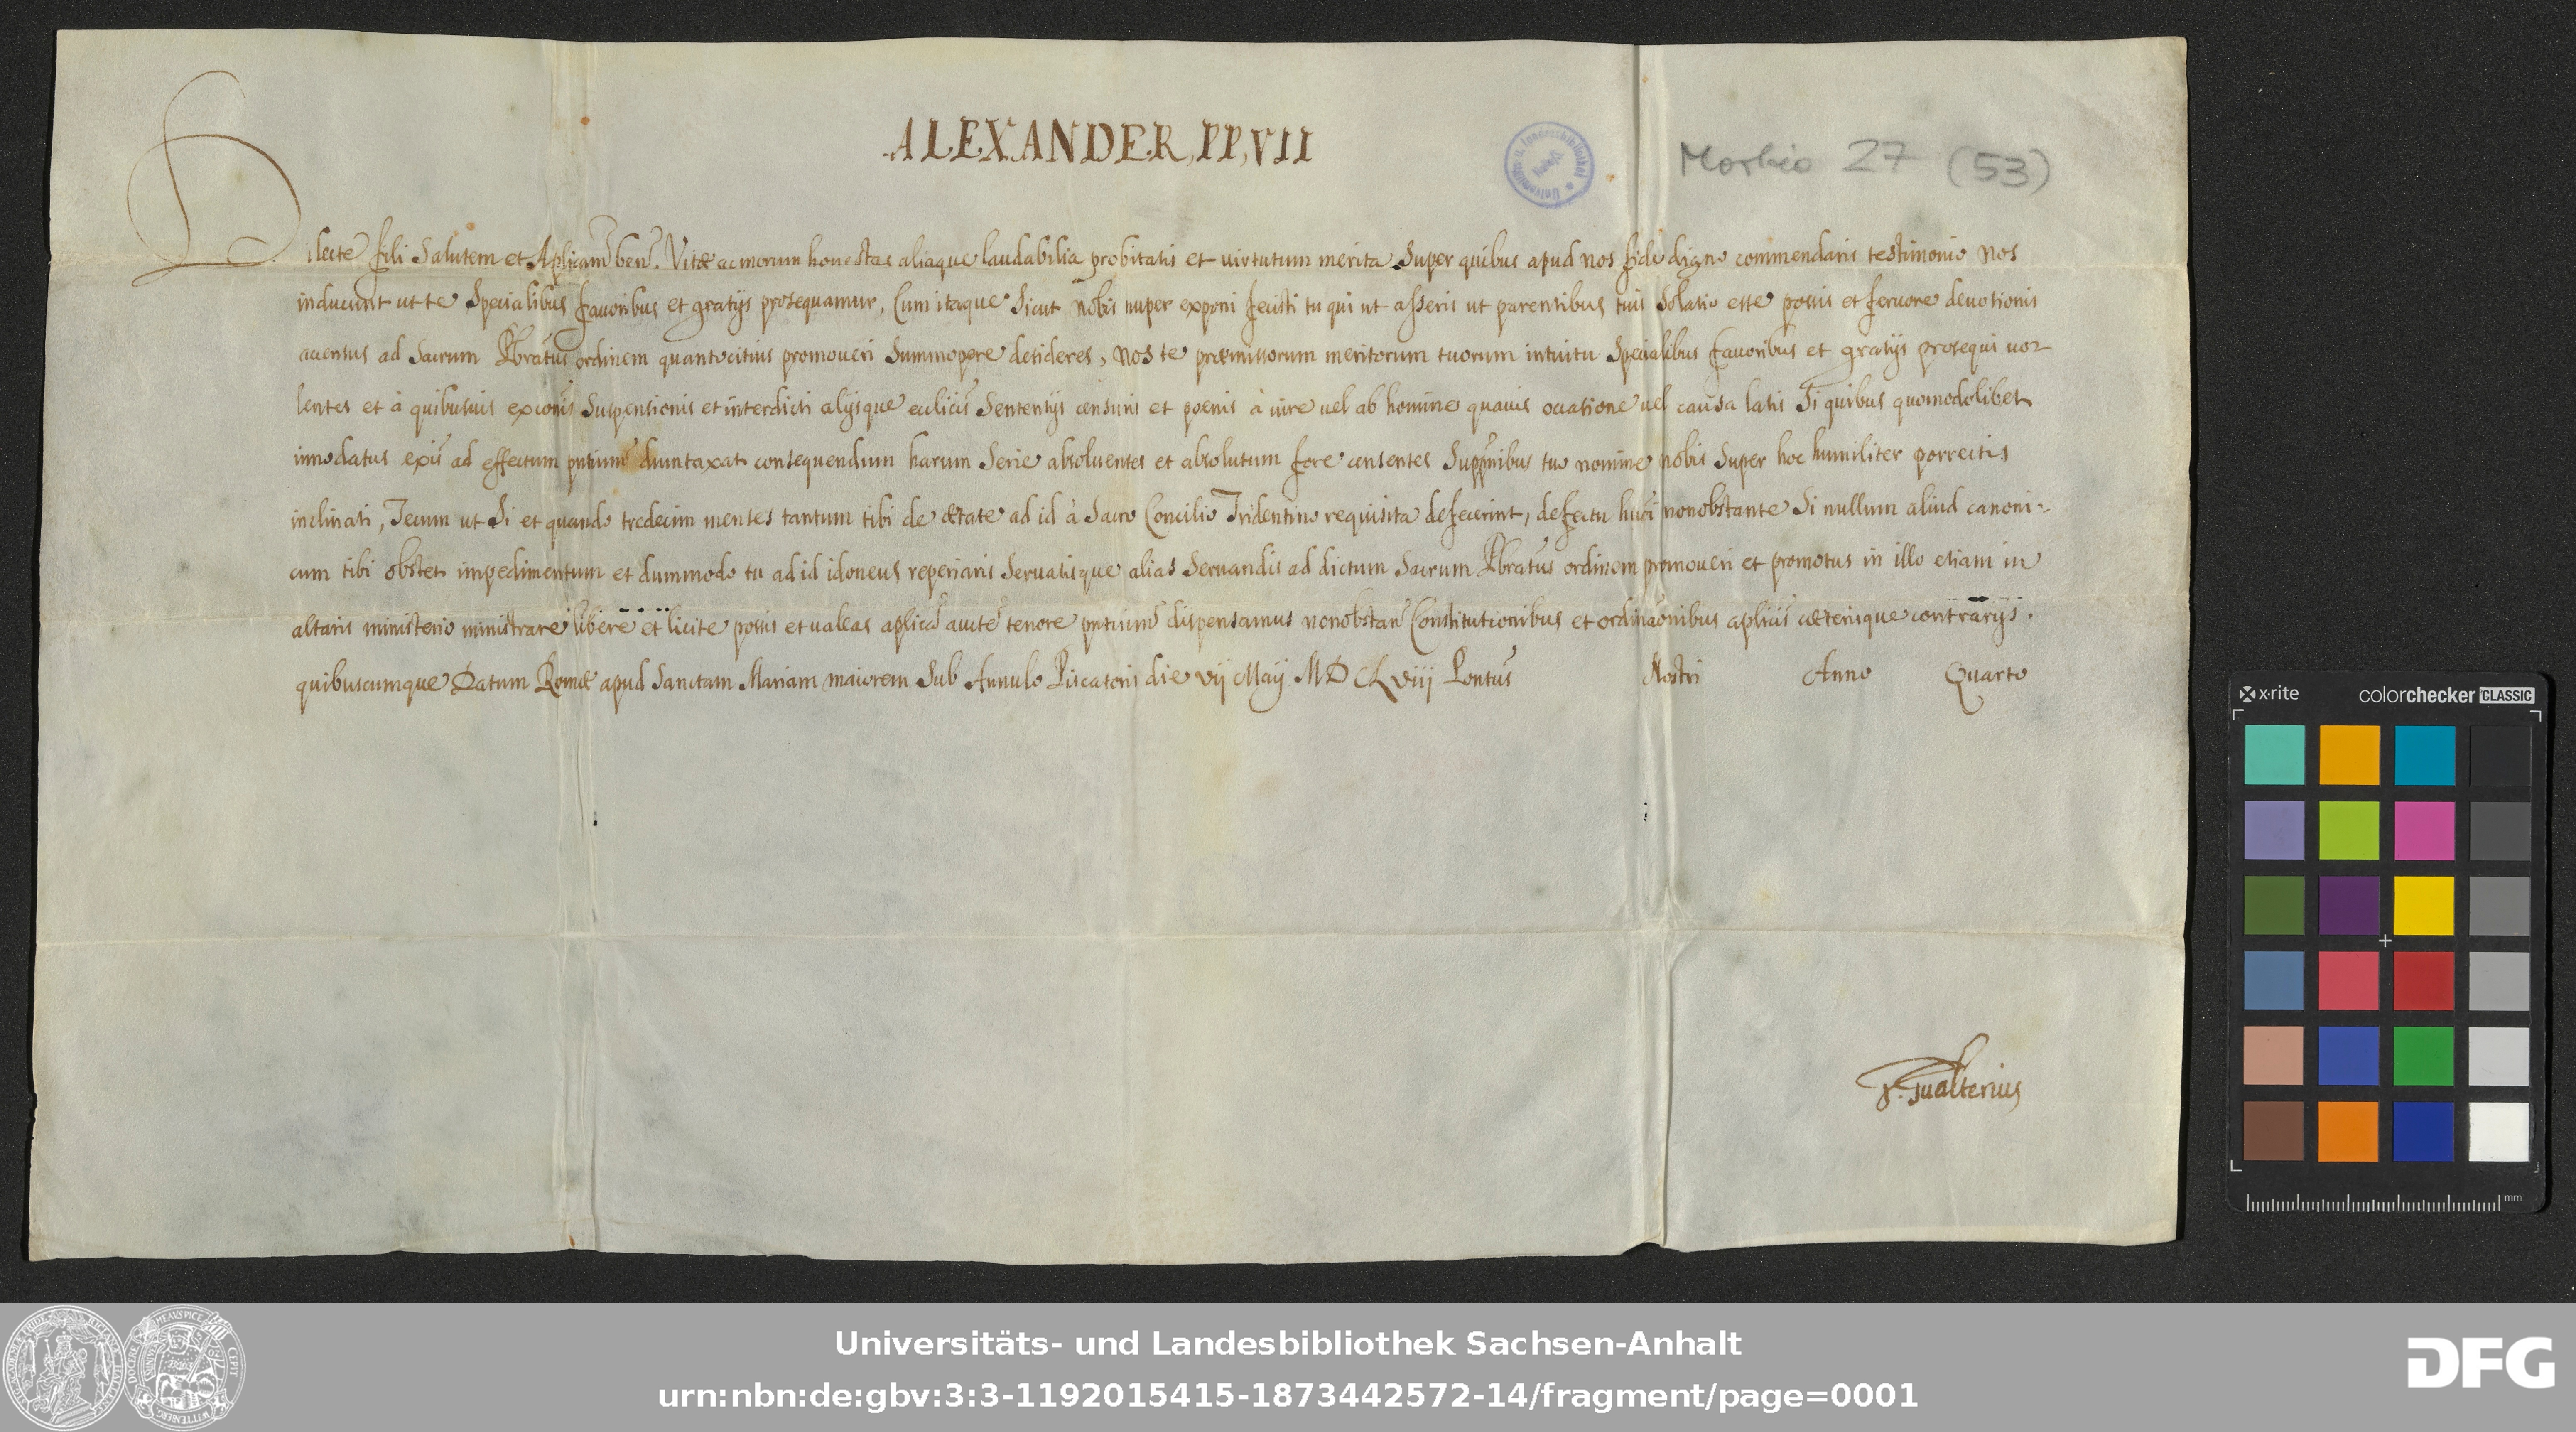 ALEXANDER, PP, VII
Morbio 27 (53)
Dilecte fili Salutem et Aplicam ben. Vitæ ac morum honestas aliaque laudabilia probitatis et uirtutum merita Super quibus apud nos fide digno commendaris testimonio nos
inducunt ut te Specialibus fauoribus et gratijs prosequamur, Cum itaque Sicut nobis nuper exponi fecisti tu qui ut asseris ut parentibus tuis Solatio esse possis et feruore deuotionis
accensus ad Sacrum Pbratus ordinem quantocitius promoueri Summopere desideres, nos te præmissorum meritorum tuorum intuitu Specialibus fauoribus et gratijs prosequi uo-
lentes et à quibusuis excoñis Suspensionis et interdicti alijsque eccliciś Sententijs censuris et poenis à iure uel ab homine quauis occasione uel causa latis Si quibus quomodolibet
innodatus exis ad effectum pntium dumtaxat consequendum harum Serie absoluentes et absolutum fore censentes Supplnibus tuo nomine nobis Super hoc humiliter porrectis
inclinati, Tecum ut Si et quando tredecim menses tantum tibi de ætate ad id à Sacro Concilio Tridentino requisita defecerint, defectu hmõi nonobstante Si nullum aliud canoni-
cum tibi obstet impedimentum et dummodo tu ad id idoneus reperiaris Seruatisque alias Seruandis ad dictum Sacrum Pbratus ordinem promoueri et promotus in illo etiam in
altaris ministerio ministrare libere et licite possis et ualeas aplica aucte tenore pntium dispensamus nonobstan Constitutionibus et ordinaonibus aplicis cæterisque contrarijs.
quibuscumque Datum Romæ apud Sanctam Mariam maiorem Sub Annulo Piscatoris die vij Maij MDCLviij Pontus Nostri Anno Quarto
Gualterius
Universitäts- und Landesbibliothek Sachsen-Anhalt
urn:nbn:de:gbv:3:3-1192015415-1873442572-14/fragment/page=0001
DFG
x-rite
colorchecker CLASSIC
mm